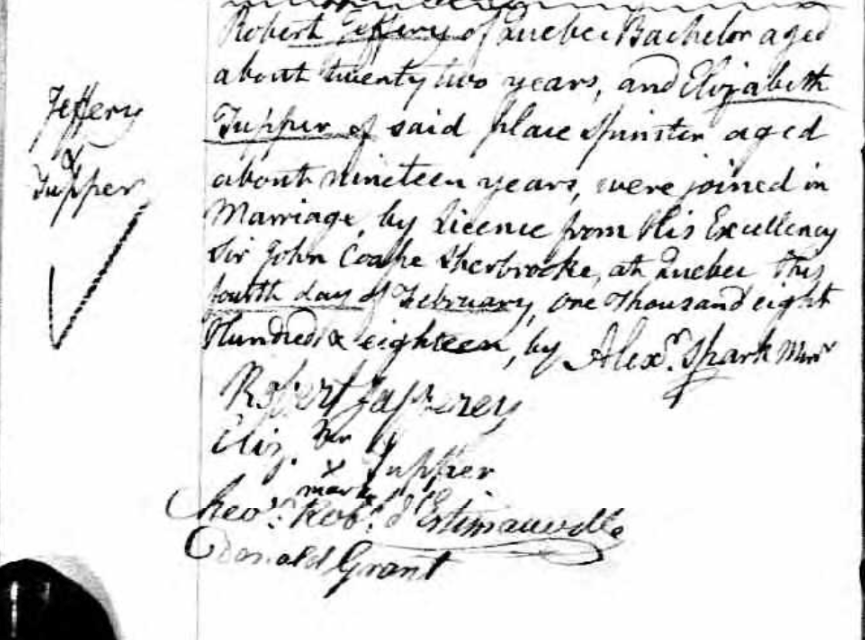 Jeffery
&
Tupper
Robert Jeffery of Quebec Bachelor aged
about twenty two years, and Elizabeth
Tupper of said place Spinster aged
about nineteen years, were joined in
Marriage, by Licence from His Excellency
Sir John Coape Sherbrooke, at Quebec this
fourth day of February, one thousand eight
Hundred & eighteen, by Alexr. Spark Minr
Robert
Eliz. her
x Tupper
mark
Robt. d'Estimauville
Donald Grant